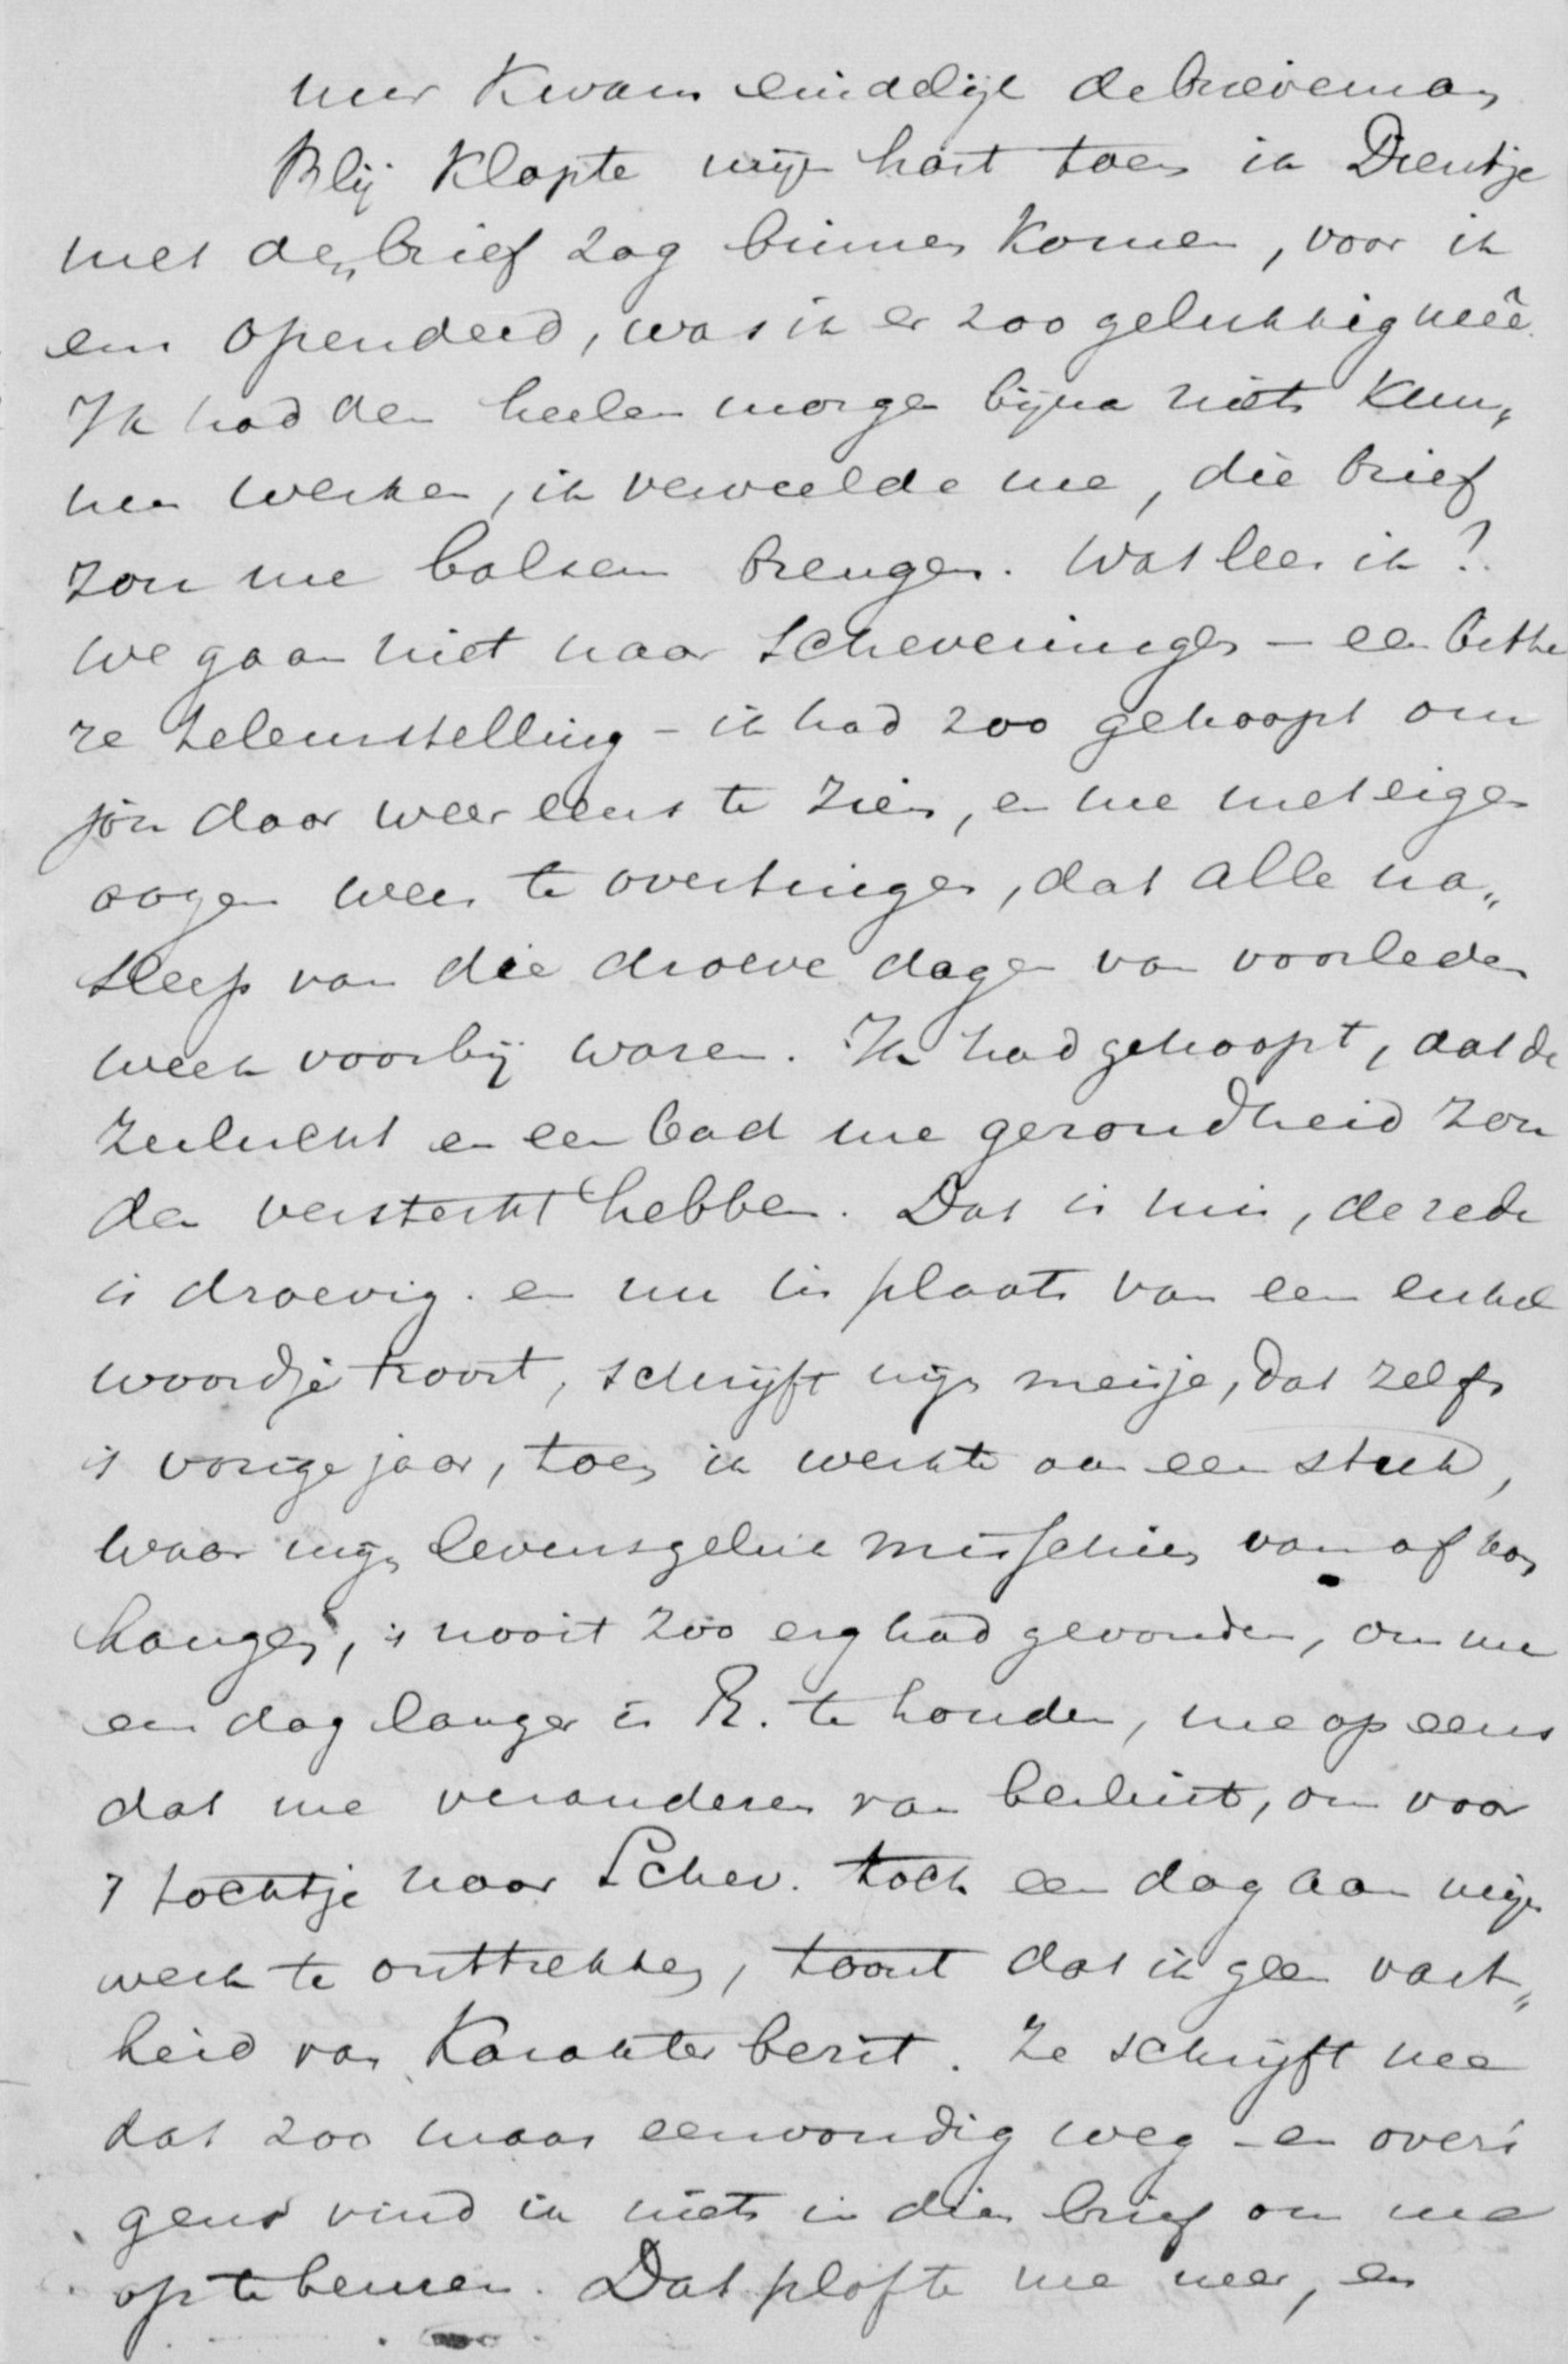 uur kwam eindelijk de brieveman
Blij klopte mijn hart toen ik Dientje
met den brief zag binnen komen, voor ik
em opendeed, was ik er zoo gelukkig meê.
Ik had den heelen morgen bijna niets kun„
nen werken, ik verveelde me, die brief
zou me balsem brengen. Wat lees ik?
we gaan niet naar Scheveningen – een bitte
re teleurstelling – ik had zoo gehoopt om
jou daar weer eens te zien, en me met eigen
oogen weer te overtuigen, dat alle na„
sleep van die droeve dagen van voorleden
week voorbij waren. Ik had gehoopt, dat de
zeelucht en een bad me gezondheid zou
den versterkt hebben. Dat is mis, de rede
is droevig. en nu in plaats van een enkel
woordje troost, schrijft mijn meisje, dat zelfs
't vorige jaar, toen ik werkte aan een stuk,
waar mijn levensgeluk misschien van af kon
hangen, 't nooit zoo erg had gevonden, om me
een dag langer in R. te houden, me op eens
dat me veranderen van besluit, om voor
't tochtje naar Schev. toch een dag aan mijn
werk te onttrekken, toont dat ik geen vast„
heid van karakter bezit. Ze schrijft me
dat zoo maar eenvoudig weg – en overi
gens vind ik niets in dien brief om me
op te beuren. Dat plofte me neer, en